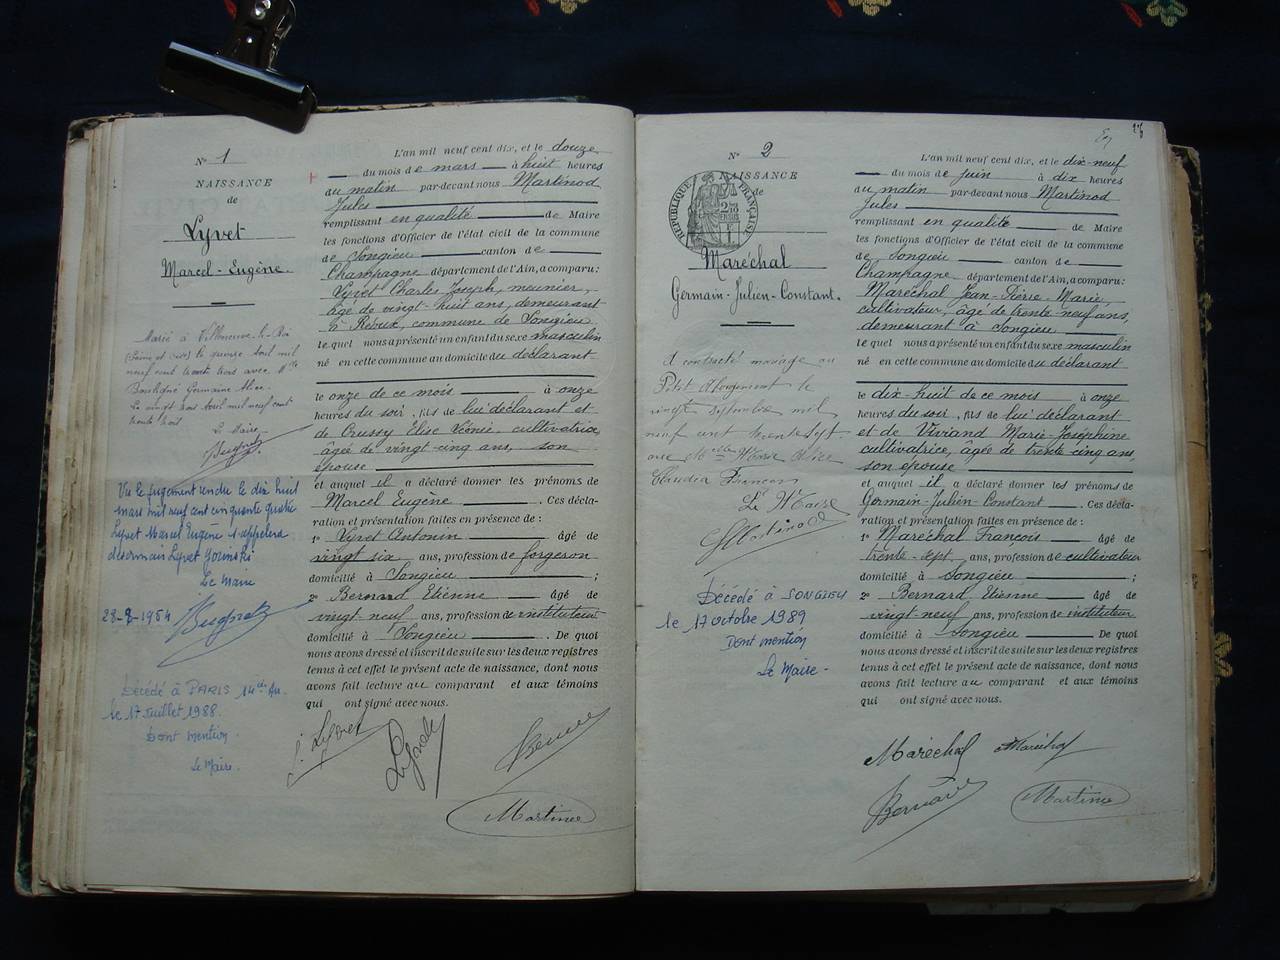 N° 1
NAISSANCE
de
Lyvet
Marcel-Eugène.
Marié à Villeneuve-le-Roi
(Seine et Oise) le quinze avril mil
neuf cent trente trois avec Mlle
Germaine Alice
Le vingt six avril mil neuf cent
trente trois
Le Maire
Vu le jugement rendu le dix huit
mars mil neuf cent cinquante quatre
Lyvet Marcel Eugène s'appellera
désormais Lyvet
Le Maire
28-8-1954
Décédé à PARIS 14ème Au.
le 17 Juillet 1988.
Dont mention
Le Maire.
L'an mil neuf cent dix, et le douze
du mois de mars à huit heures
au matin par-devant nous Martinod
Jules
remplissant en qualité de Maire
les fonctions d'Officier de l'état civil de la commune
de Songieu canton de
Champagne département de l'Ain, a comparu:
Lyvet Charles Joseph, meunier,
âgé de vingt-huit ans, demeurant
à commune de Songieu
lequel nous a présenté un enfant du sexe masculin
né en cette commune au domicile du déclarant
le onze de ce mois à onze
heures du soir, fils de lui déclarant et
de Crussy Elise Léonie cultivatrice
âgée de vingt-cinq ans, son
épouse
et auquel il a déclaré donner les prénoms de
Marcel Eugène. Ces décla-
ration et présentation faites en présence de:
1° Lyvet Antonin âgé de
vingt six ans, profession de forgeron
domicilié à Songieu;
2° Bernard Etienne âgé de
vingt-neuf ans, profession de instituteur
domicilié à Songieu. De quoi
nous avons dressé et inscrit de suite sur les deux registres
tenus à cet effet le présent acte de naissance, dont nous
avons fait lecture au comparant et aux témoins
qui ont signé avec nous.
N° 2
NAISSANCE
de
RÉPUBLIQUE FRANÇAISE
Maréchal
Germain-Julien-Constant.
A contracté mariage au
Petit Abergement le
vingt septembre mil
neuf cent trente sept
avec Melle Marie Alice
Claudia Francon
Le Maire
Martinod
Décédé à SONGIEU
le 17 octobre 1989
Dont mention
Le Maire-
L'an mil neuf cent dix, et le dix-neuf
du mois de juin à dix heures
au matin par-devant nous Martinod
Jules
remplissant en qualité de Maire
les fonctions d'Officier de l'état civil de la commune
de Songieu canton de
Champagne département de l'Ain, a comparu:
Maréchal Jean-Pierre-Marie,
cultivateur, âgé de trente-neuf ans,
demeurant à Songieu
lequel nous a présenté un enfant du sexe masculin
né en cette commune au domicile du déclarant
le dix-huit de ce mois à onze
heures du soir, fils de lui déclarant
et de Viviand Marie-Joséphine
cultivatrice, âgée de trente-cinq ans
son épouse
et auquel il a déclaré donner les prénoms de
Germain-Julien-Constant. Ces décla-
ration et présentation faites en présence de:
1° Maréchal François âgé de
trente-sept ans, profession de cultivateur
domicilié à Songieu;
2° Bernard Etienne âgé de
vingt-neuf ans, profession de instituteur
domicilié à Songieu De quoi
nous avons dressé et inscrit de suite sur les deux registres
tenus à cet effet le présent acte de naissance, dont nous
avons fait lecture au comparant et aux témoins
qui ont signé avec nous.
Maréchal Maréchal